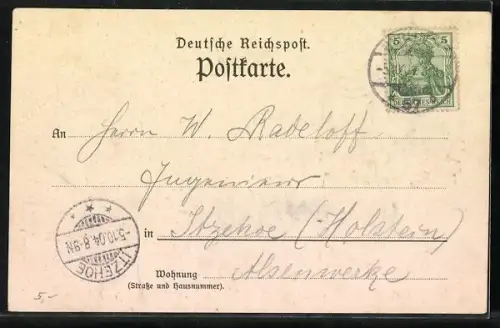 Deutsche Reichspost.
Postkarte.
5 5
57
An Herrn W. Radeloff
Ingenieur
in Itzehoe (Holstein)
Wohnung Alsenwerke
(Straße und Hausnummer).
ITZEHOE
5.10.04.8-9N
5.-